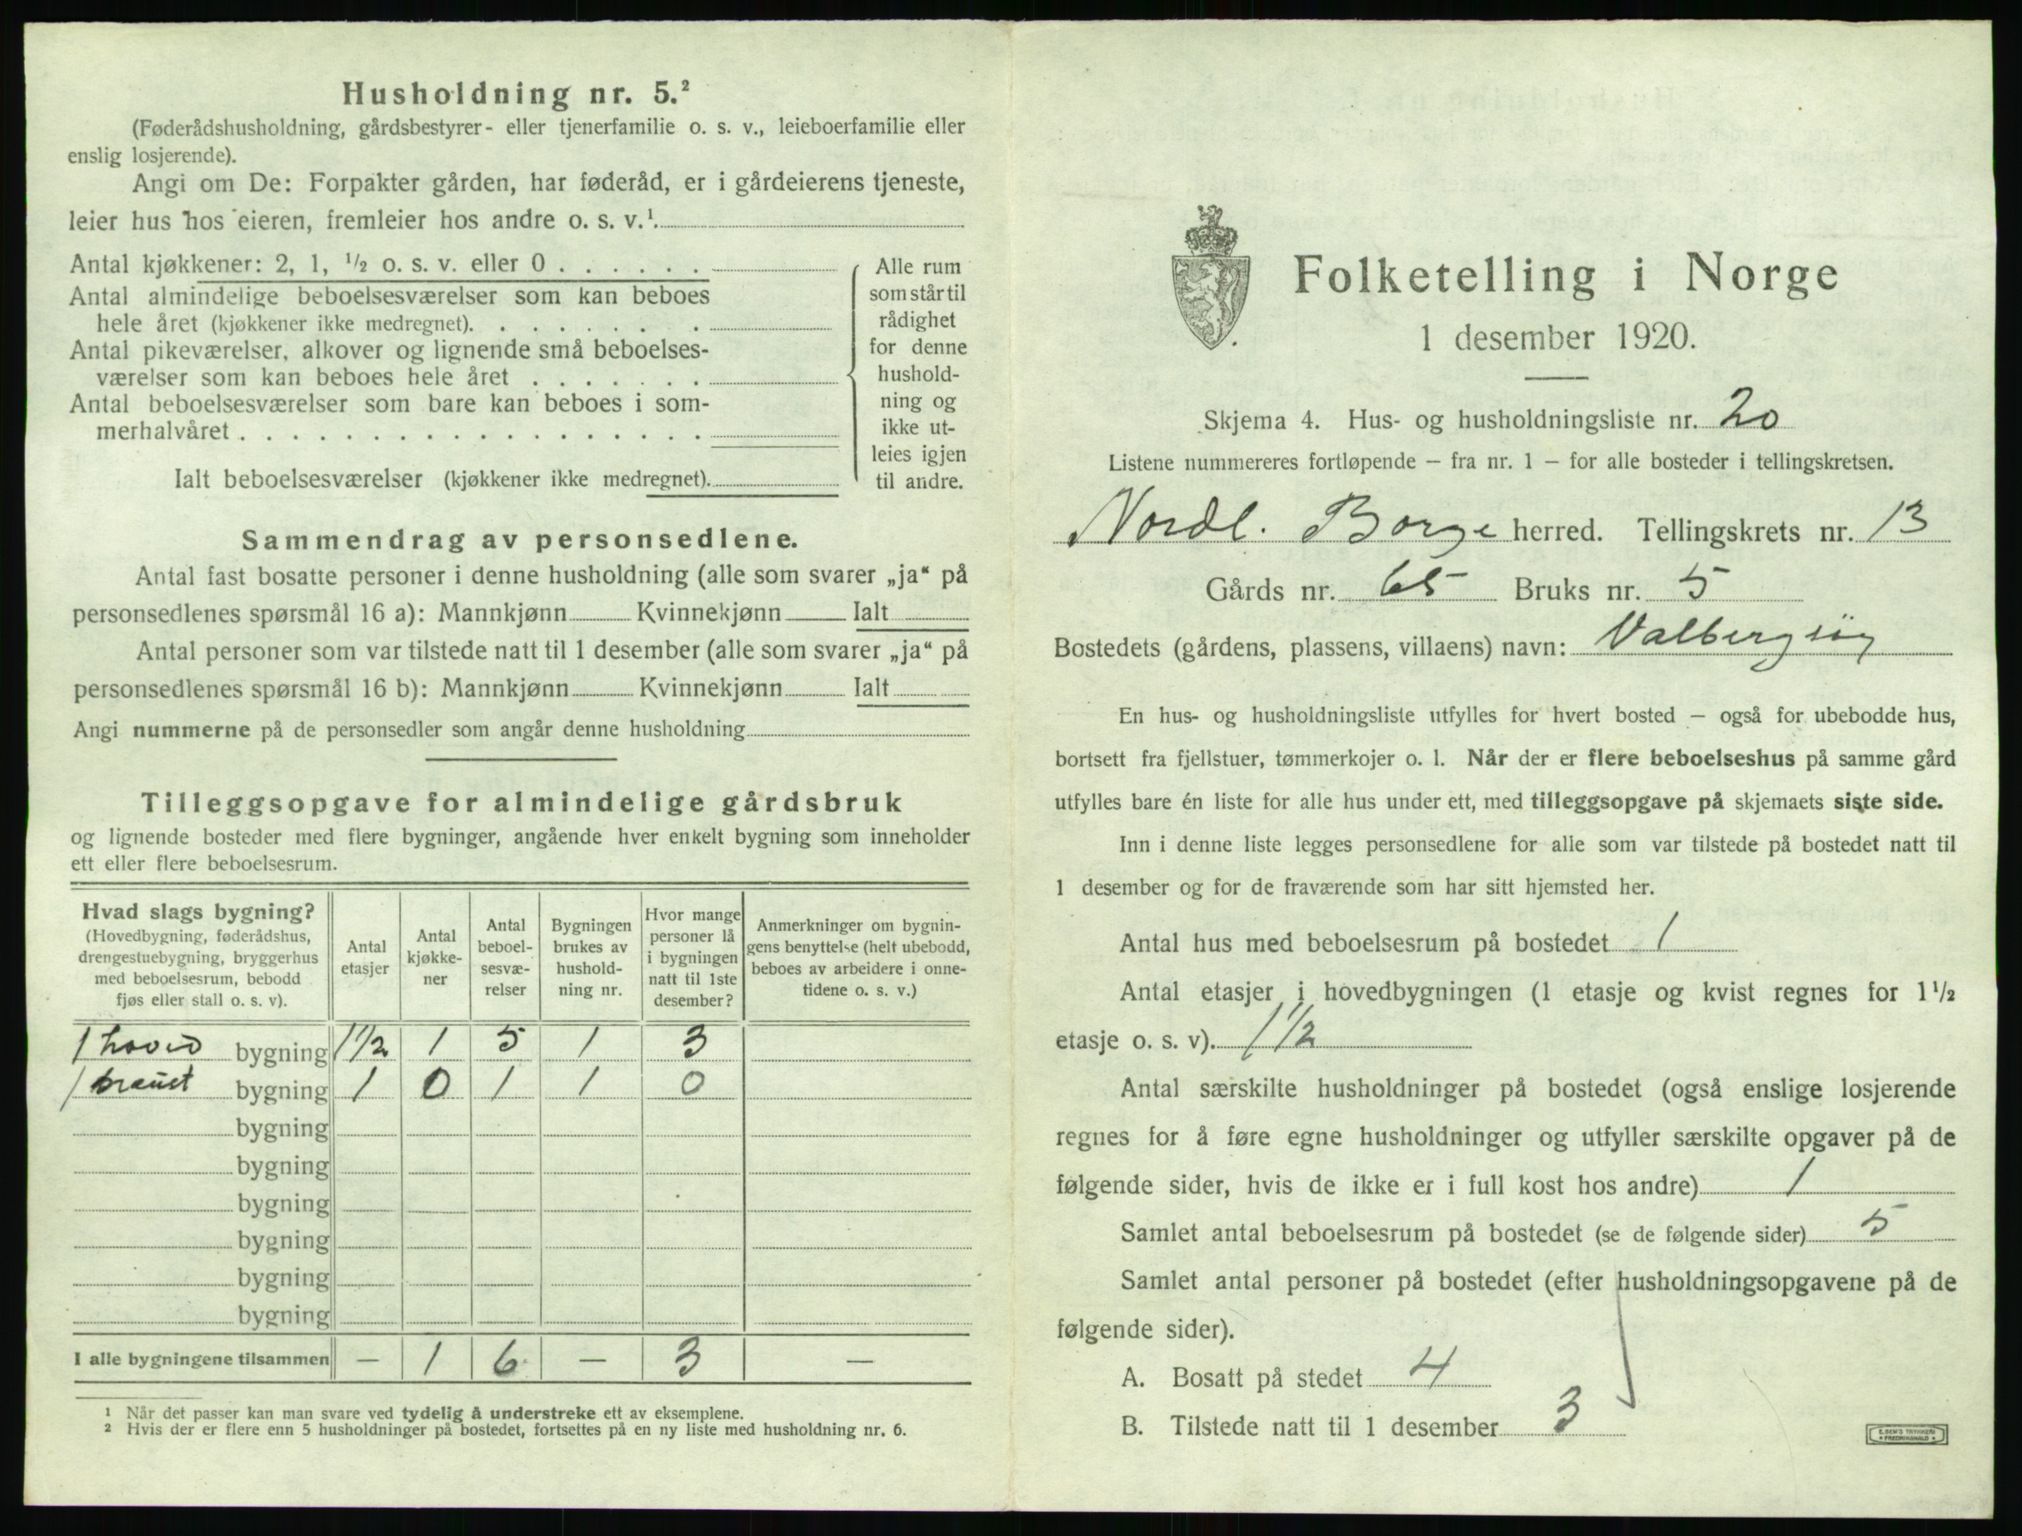 Husholdning nr. 5.²
(Føderådshusholdning, gårdsbestyrer- eller tjenerfamilie o. s. v., leieboerfamilie eller
enslig losjerende).
Angi om De: Forpakter gården, har føderåd, er i gårdeierens tjeneste,
leier hus hos eieren, fremleier hos andre o. s. v.¹
Antal kjøkkener: 2, 1, ½ o. s. v. eller 0
Antal almindelige beboelsesværelser som kan beboes
hele året (kjøkkener ikke medregnet).
Antal pikeværelser, alkover og lignende små beboelses-
værelser som kan beboes hele året
Antal beboelsesværelser som bare kan beboes i som-
merhalvåret
Ialt beboelsesværelser (kjøkkener ikke medregnet).
Alle rum
som står til
rådighet
for denne
hushold-
ning og
ikke ut-
leies igjen
til andre.
Sammendrag av personsedlene.
Antal fast bosatte personer i denne husholdning (alle som svarer „ja“ på
personsedlenes spørsmål 16 a): Mannkjønn Kvinnekjønn Ialt
Antal personer som var tilstede natt til 1 desember (alle som svarer „ja“ på
personsedlenes spørsmål 16 b): Mannkjønn Kvinnekjønn Ialt
Angi nummerne på de personsedler som angår denne husholdning
Tilleggsopgave for almindelige gårdsbruk
og lignende bosteder med flere bygninger, angående hver enkelt bygning som inneholder
ett eller flere beboelsesrum.
Hvad slags bygning?
(Hovedbygning, føderådshus,
drengestuebygning, bryggerhus
med beboelsesrum, bebodd
fjøs eller stall o. s. v).
Antal
etasjer
Antal
kjøkke-
ner
Antal
beboel-
sesvæ-
relser
Bygningen
brukes av
hushold-
ning nr.
Hvor mange
personer lå
i bygningen
natt til 1ste
desember?
Anmerkninger om bygnin-
gens benyttelse (helt ubebodd,
beboes av arbeidere i onne-
tidene o. s. v.)
1 hoved bygning 1½ 1 5 1 3
1 bygning 1 0 1 1 0
bygning
bygning
bygning
bygning
bygning
bygning
I alle bygningene tilsammen — 1 6 — 3 —
¹ Når det passer kan man svare ved tydelig å understreke ett av eksemplene.
² Hvis der er flere enn 5 husholdninger på bostedet, fortsettes på en ny liste med husholdning nr. 6.
Folketelling i Norge
1 desember 1920.
Skjema 4. Hus- og husholdningsliste nr. 20
Listene nummereres fortløpende – fra nr. 1 – for alle bosteder i tellingskretsen.
Nordl. Borge herred. Tellingskrets nr. 13
Gårds nr. 65 Bruks nr. 5
Bostedets (gårdens, plassens, villaens) navn: Valbergsöy
En hus- og husholdningsliste utfylles for hvert bosted – også for ubebodde hus,
bortsett fra fjellstuer, tømmerkojer o. l. Når der er flere beboelseshus på samme gård
utfylles bare én liste for alle hus under ett, med tilleggsopgave på skjemaets siste side.
Inn i denne liste legges personsedlene for alle som var tilstede på bostedet natt til
1 desember og for de fraværende som har sitt hjemsted her.
Antal hus med beboelsesrum på bostedet 1
Antal etasjer i hovedbygningen (1 etasje og kvist regnes for 1½
etasje o. s. v). 1½
Antal særskilte husholdninger på bostedet (også enslige losjerende
regnes for å føre egne husholdninger og utfyller særskilte opgaver på de
følgende sider, hvis de ikke er i full kost hos andre) 1
Samlet antal beboelsesrum på bostedet (se de følgende sider) 5
Samlet antal personer på bostedet (efter husholdningsopgavene på de
følgende sider).
A. Bosatt på stedet 4
B. Tilstede natt til 1 desember 3
E. SEM'S TRYKKERI
FREDRIKSHALD